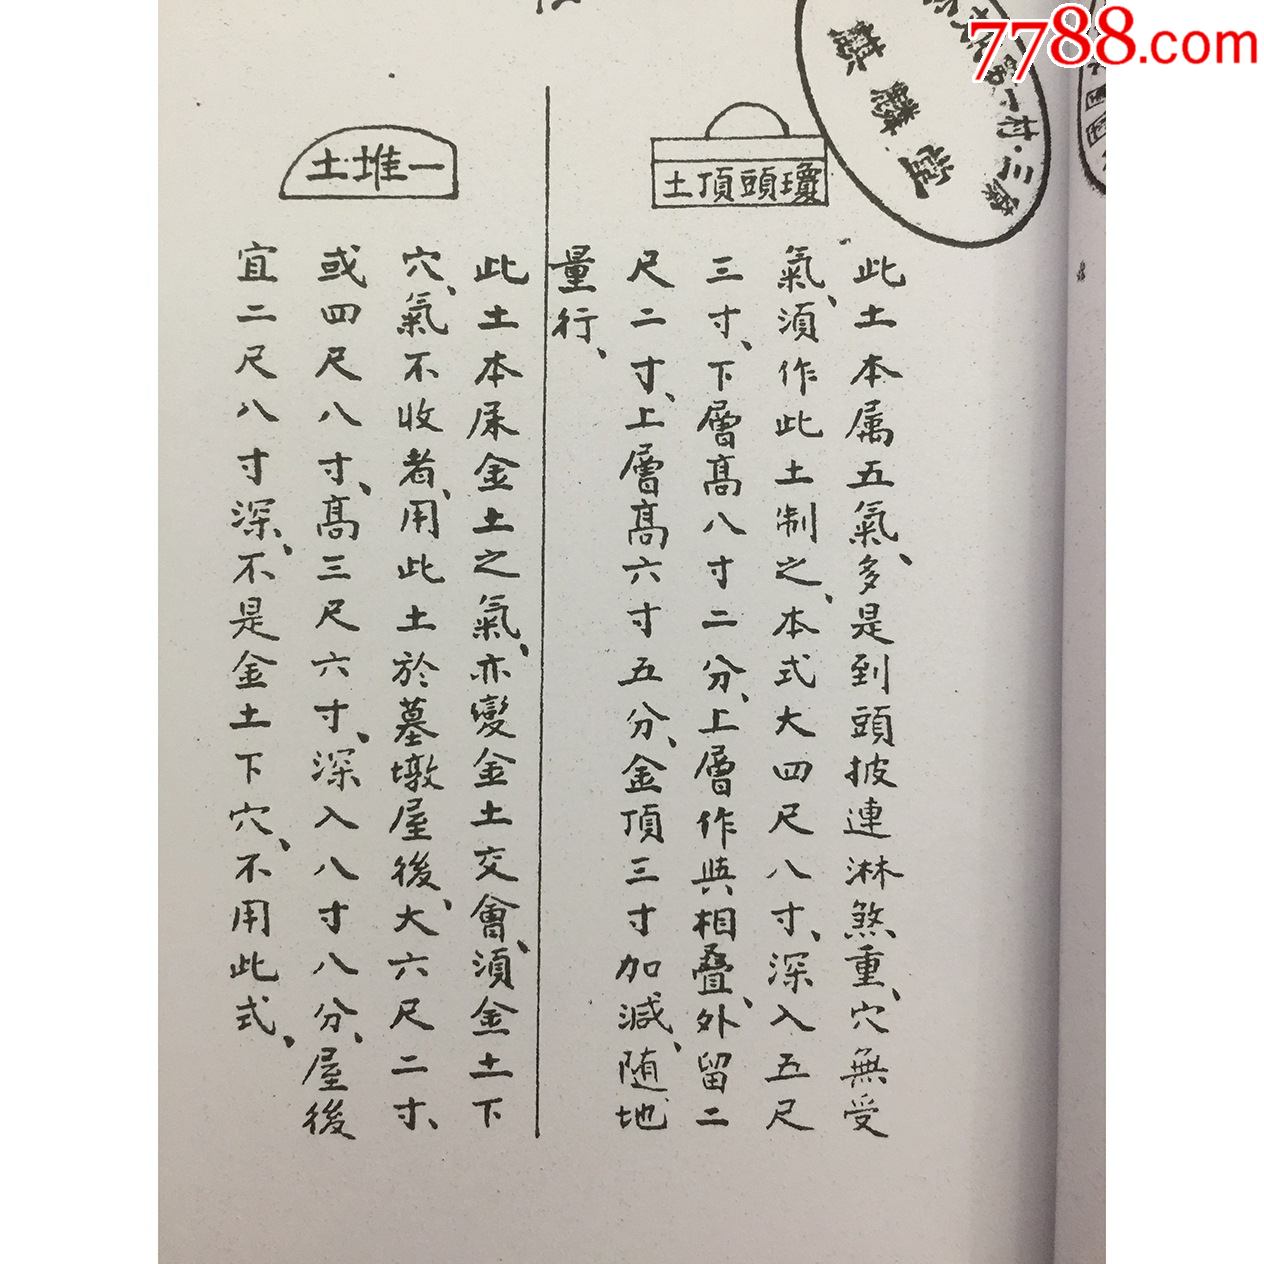 7788.com
瓊頭頂土
此土本属五氣、多是到頭披連淋煞重、穴無受
氣、須作此土制之、本式大四尺八寸、深入五尺
三寸、下層高八寸二分、上層作與相叠、外留二
尺二寸、上層高六寸五分、金頂三寸加减、随地
量行、
一堆土
此土本屎金土之氣、亦變金土交會、須金土下
穴、氣不收者、用此土於墓墩屋後、大六尺二寸、
或四尺八寸、高三尺六寸、深入八寸八分、屋後
宜二尺八寸深、不是金土下穴、不用此式、
麒麟堂